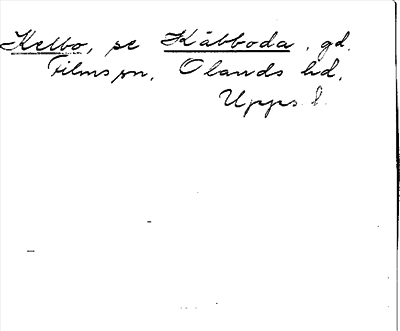 Kelbo, se Kåbboda, gd.
Films sn, Olands hd,
Upps. l.